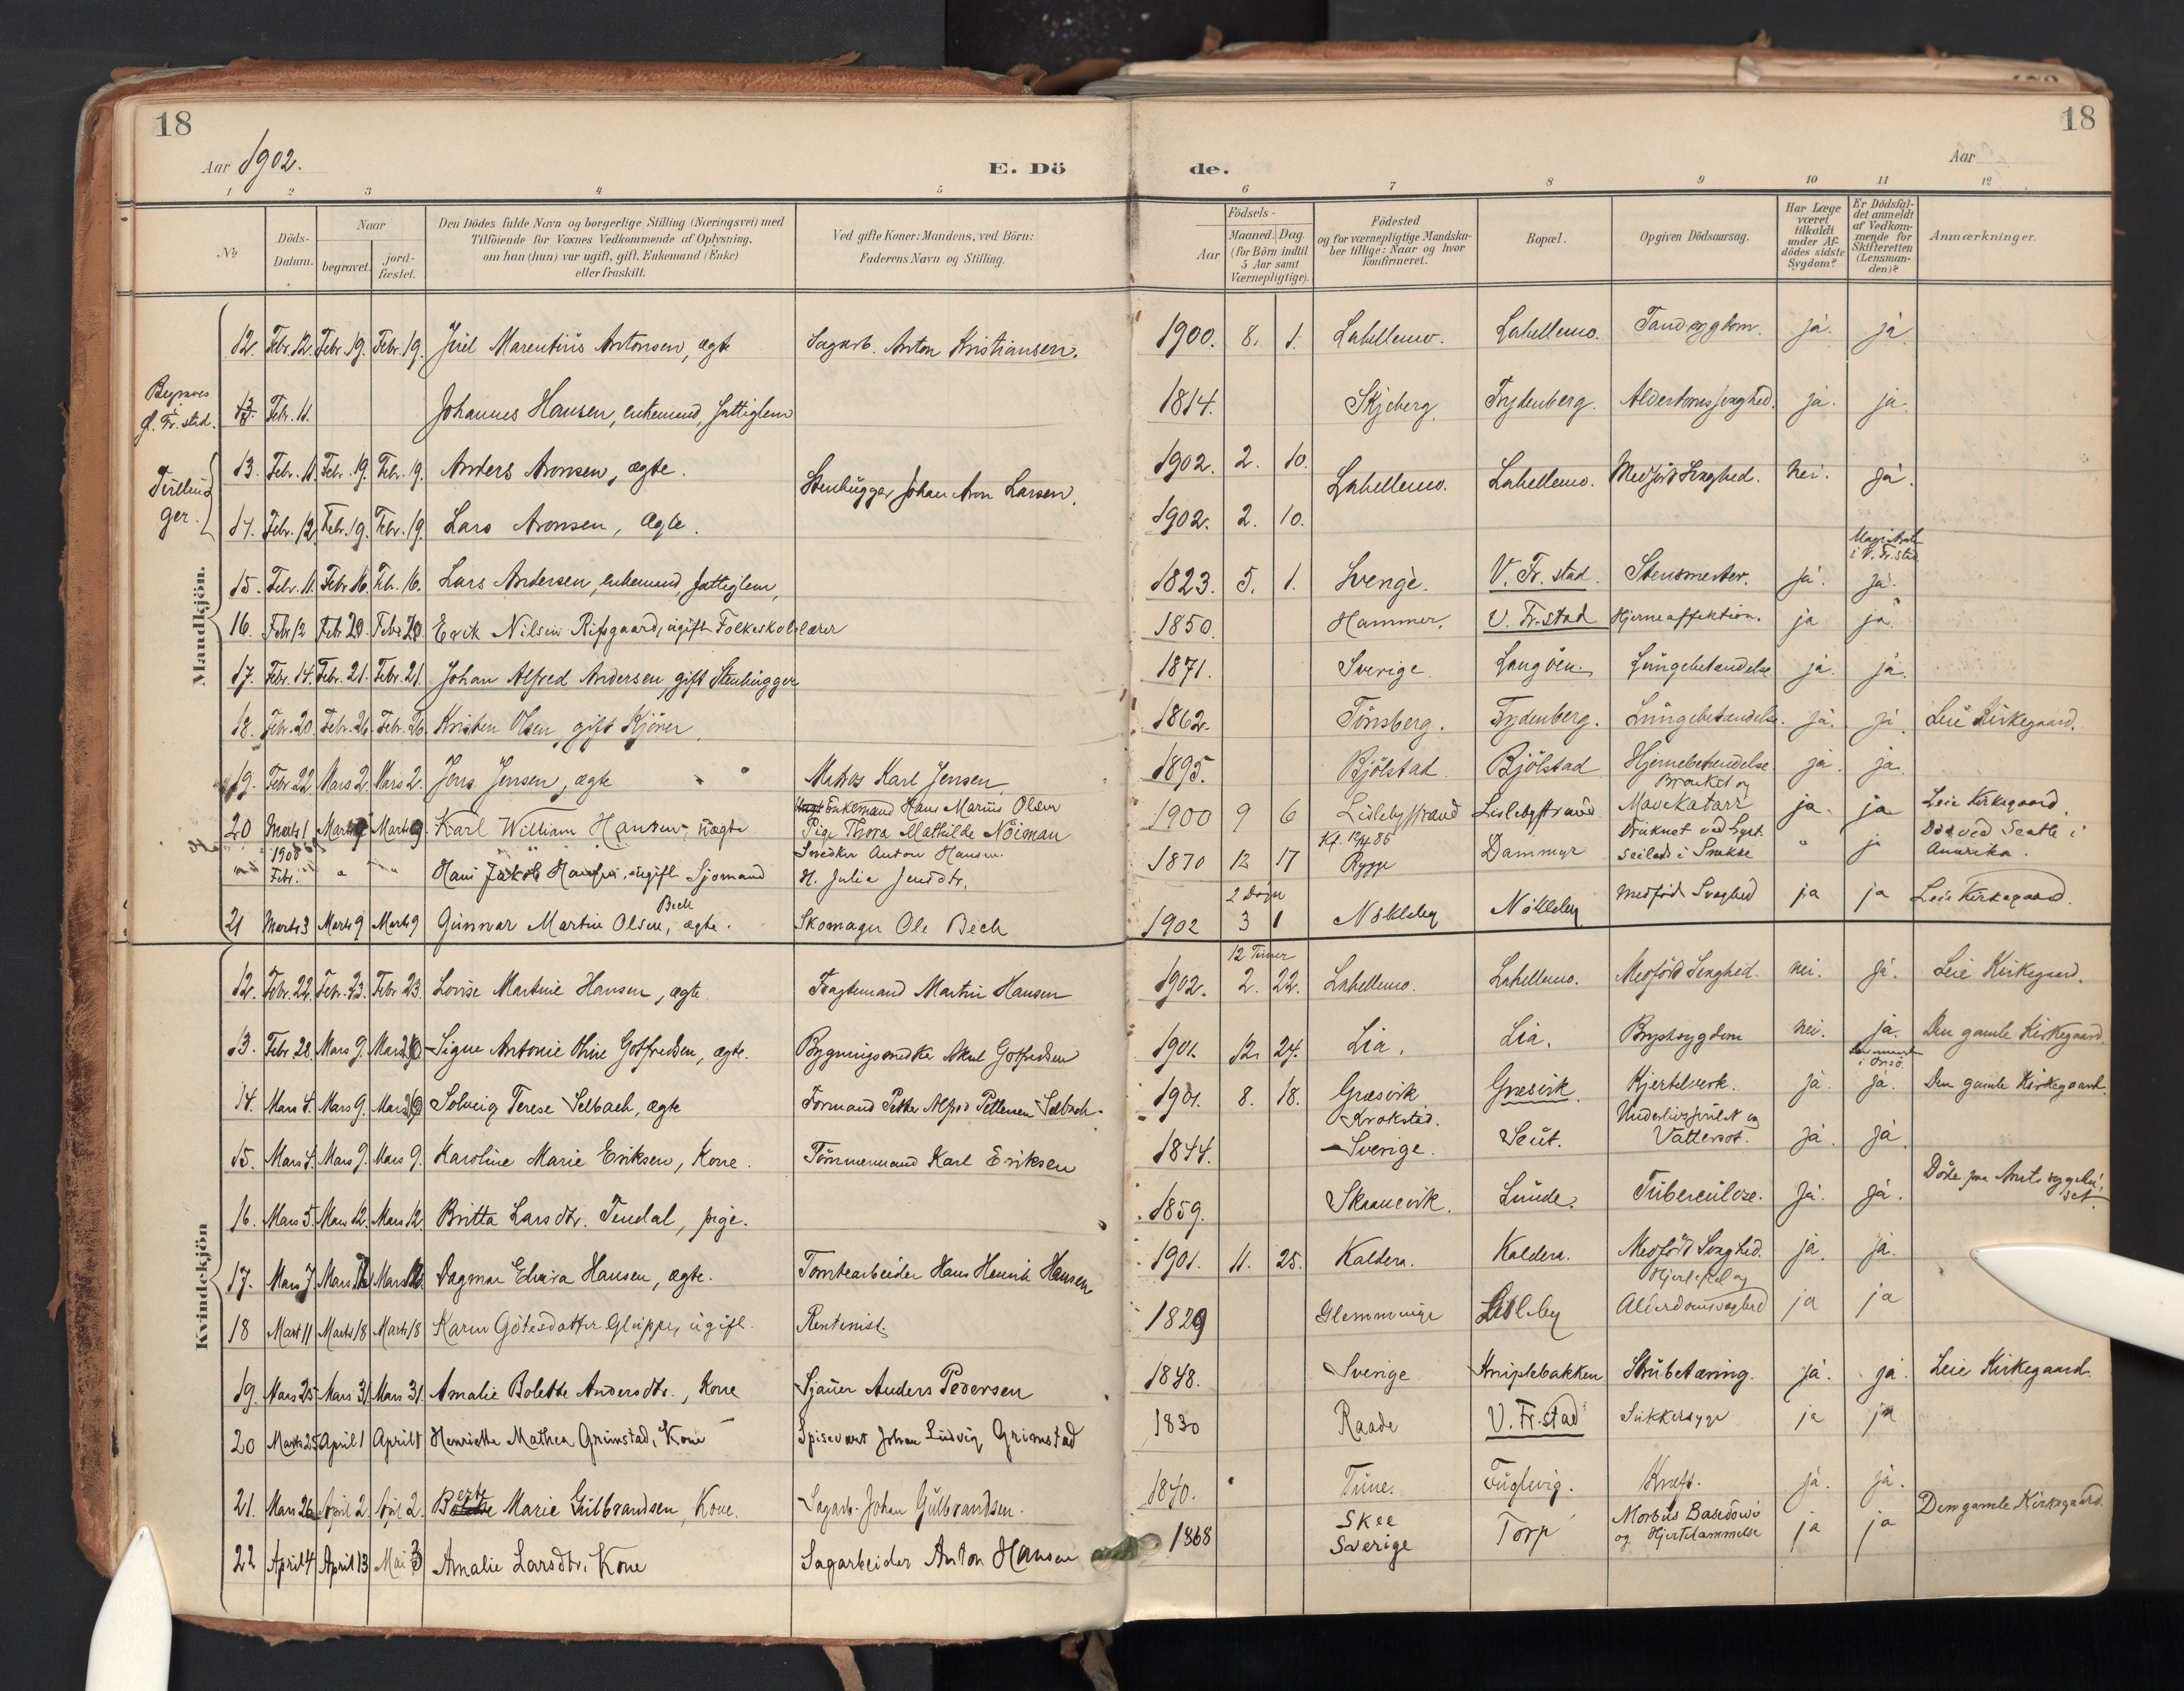 18
18
Aar 1902.
E. Dö
de.
Aar
1 2 3 4 5 6 7 8 9 10 11 12
No.
Döds-Datum.
Naar
begravet.
jord-fæstet.
Den Dödes fulde Navn og borgerlige Stilling (Næringsvei) med
Tilföiende for Voxnes Vedkommende af Oplysning.
om han (hun) var ugift, gift, Enkemand (Enke)
eller fraskilt.
Ved gifte Koner: Mandens, ved Börn:
Faderens Navn og Stilling.
Födsels-
Aar
Maaned. Dag.
(for Börn indtil
5 Aar samt
Værnepligtige).
Födested
og for værnepligtige Mandska-
ber tillige: Naar og hvor
konfirmeret.
Bopæl.
Opgiven Dödsaarsag.
Har Læge
været
tilkaldt
under Af-
dödes sidste
Sygdom?
Er Dödsfal-
det anmeldt
af Vedkom-
mende for
Skifteretten
(Lensman-
den)?
Anmærkninger.
Mandkjön.
12. Febr. 12. Febr. 19. Febr. 19. Juel Marentius Antonsen, ægte Sagarb. Anton Kristiansen. 1900. 8. 1. Lahellemo. Lahellemo. Tandsygdom. ja. ja.
Begraves
gl. Fr. stad.
Febr. 11. Johannes Hansen, enkemand, fattiglem 1814. Skjeberg. Trydenberg. Alderdomssvaghed. ja. ja.
Tvillin-
ger.
13. Febr. 11. Febr. 19. Febr. 19. Anders Aronsen, ægte. Stenhugger Johan Aron Larsen. 1902. 2. 10. Lahellemo. Lahellemo. Medfødt Svaghed. nei. ja.
14. Febr. 12. Febr. 19. Febr. 19. Lars Aronsen, ægte. 1902. 2. 10.
Magistrat
i V. Fr. stad
15. Febr. 11. Febr. 16. Feb. 16. Lars Andersen, enkemand, fattiglem, 1823. 5. 1. V. Fr. stad. ja. ja.
16. Febr 12 Febr 20. Febr 20. Erik Nilsen Rifsgaard, ugift Folkeskolelærer 1850. Hammer. V. Fr.stad Hjerneaffektion. ja ja
17. Febr. 14. Febr. 21. Febr. 21. Johan Alfred Andersen gift Stenhugger 1871. Sverige. Langöen. Lungebetændelse ja. ja.
18. Febr. 20. Febr. 26. Febr. 26. Kristen Olsen, gift Kjörer 1862. Tönsberg. Trydenberg. Lungebetændelse. ja. ja. Leie Kirkegaard.
19. Febr 22 Mars 2. Mars 2. Jens Jensen, ægte Matros Karl Jensen 1895. Bjölstad Bjölstad Hjernebetændelse ja. ja.
20 Marts 1 Marts 9 Marts 9. Karl William Hansen, uægte Enkemand Hans Marius Olsen
Pige Thora Mathilde Nöiman 1900 9 6 Lislebystrand Lislebystrand Brocket og
Mavekatarr ja. ja Leie Kirkegaard
1900
Febr. Hans Jakob Hansen, ugift Sjømand Snedker Anton Hansen.
H. Julia Jensdtr. 1870 12 17 Rygge Dammyr Druknet ved Lyst-
seilads i Smakke " ja Död ved Seatle i
Amerika.
21 Marts 3 Marts 9 Marts 9 Gunnar Martin Olsen Bech, ægte. Skomager Ole Bech 1902 3 1 2 Dogn Nökleby Nökleby medfödt Svaghed ja ja Leie Kirkegaard.
Kvindekjön
12. Febr. 22. Febr. 23. Febr 23. Lovise Martine Hansen, ægte. Fragtemand Martin Hansen 12 Timer 1902. 2. 22. Lahellemo. Lahellemo. Medfödt Svaghed. nei. ja. Leie Kirkegaard.
13. Febr. 28. Mars 9. Signe Antonie Othine Gotfredsen, ægte. Bygningssnedker Gotfredsen 1901. 12. 24. Lia. Lia. Brystsygdom nei. ja. Den gamle Kirkegaard.
14. Mars 4. Mars 9. Solveig Terese Selbach, ægte Formand Petter Alfred Pettersen Selbach. 1901. 8. 18. Græsvik Græsvik. Kjertelverk. ja. ja. Den gamle Kirkegaard.
15. Mars 4. Mars 9. Mars 9. Karoline Marie Eriksen, Kone. Tömmermand Karl Eriksen 1844. Krokstad.
Sverige. Seut. Underlivssvulst og
Vattersot. ja. ja.
16. Mars 5. Mars 12. Mars 12. Britta Larsdtr. Tendal, pige. 1859. Skaanevik. Lunde. Tuberculose. ja. ja. Döde paa Amtssygehu-
set.
17. Mars 7. Dagmar Elvira Hansen, ægte. Tomtearbeider Hans Henrik Hansen 1901. 11. 25. Kaldera. Kaldera. Medfödt Svaghed. ja. ja.
18 Marts 11 Marts 18 Marts 18 Karen Götesdatter Gluppe, ugift. Rentenist. 1829 Glemminge Lisleby Hjertefeil og
Alderdomssvaghed ja ja
19. Mars 25 Mars 31. Mars 31. Amalie Bolette Andersdtr., Kone Sjauer Anders Pedersen 1848. Sverige Kniplebakken Strubetæring. ja. ja. Leie Kirkegaard.
20 Marts 25 April 1 April 1 Henriette Mathea Grimstad, Kone Spisevert Johan Ludvig Grimstad 1830 Raade V. Fr.stad Sukkersyge ja ja
21. Mars 26 April 2. April 2. Berte Marie Gulbrandsen, Kone. Sagarb. Johan Gulbrandsen. 1840. Tune. Fuglevig. Kræft. ja. ja.
22 April 4 April 13 Mai 3 Amalie Larsdtr. Kone Sagarbeider Anton Hansen 1868 Skee
Sverige Torp Morbus Basedowii
og Hjertelammelse ja ja Den gamle Kirkegaard.